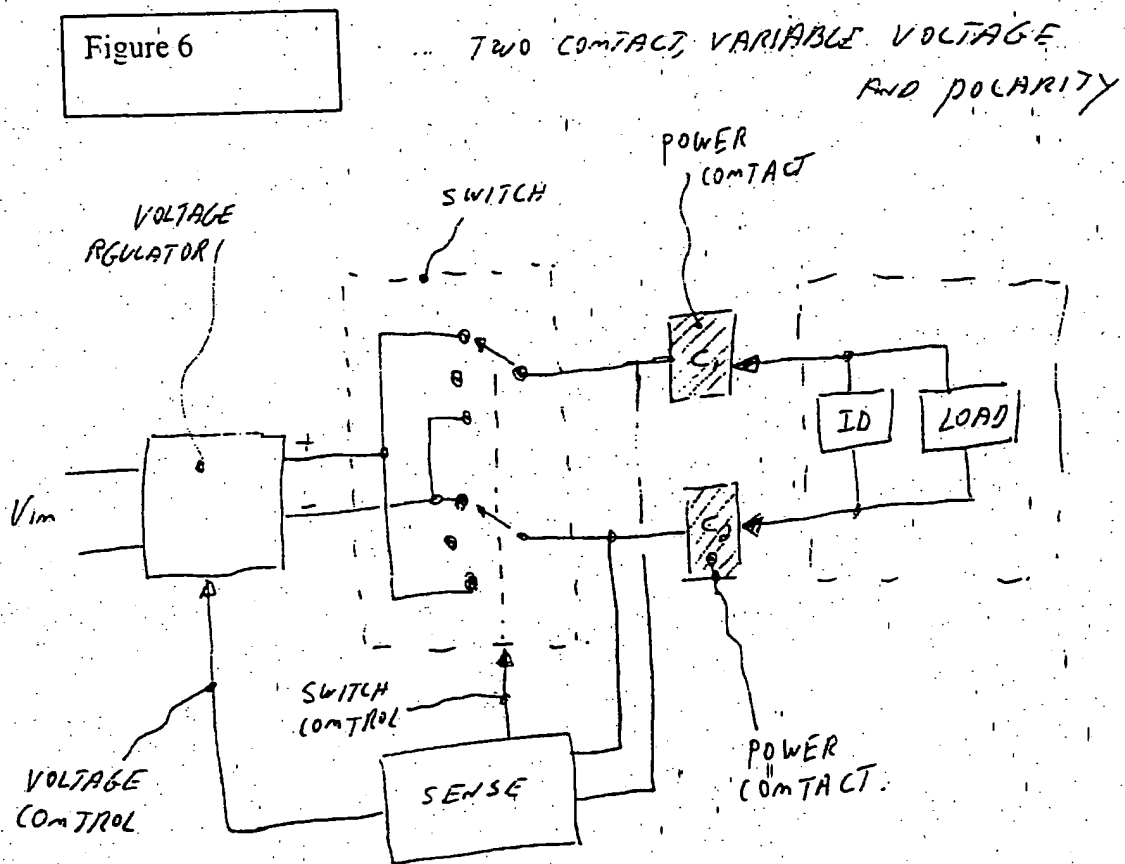 Figure 6
... TWO COMTACT, VARIABLE VOLTAGE
AND POLARITY
POWER
COMTACT
SWITCH
VOLTAGE
RGULATOR
C1
ID
LOAD
+
-
Vim
C2
SWITCH
COMTROL
POWER
COMTACT.
VOLTAGE
COMTROL
SENSE